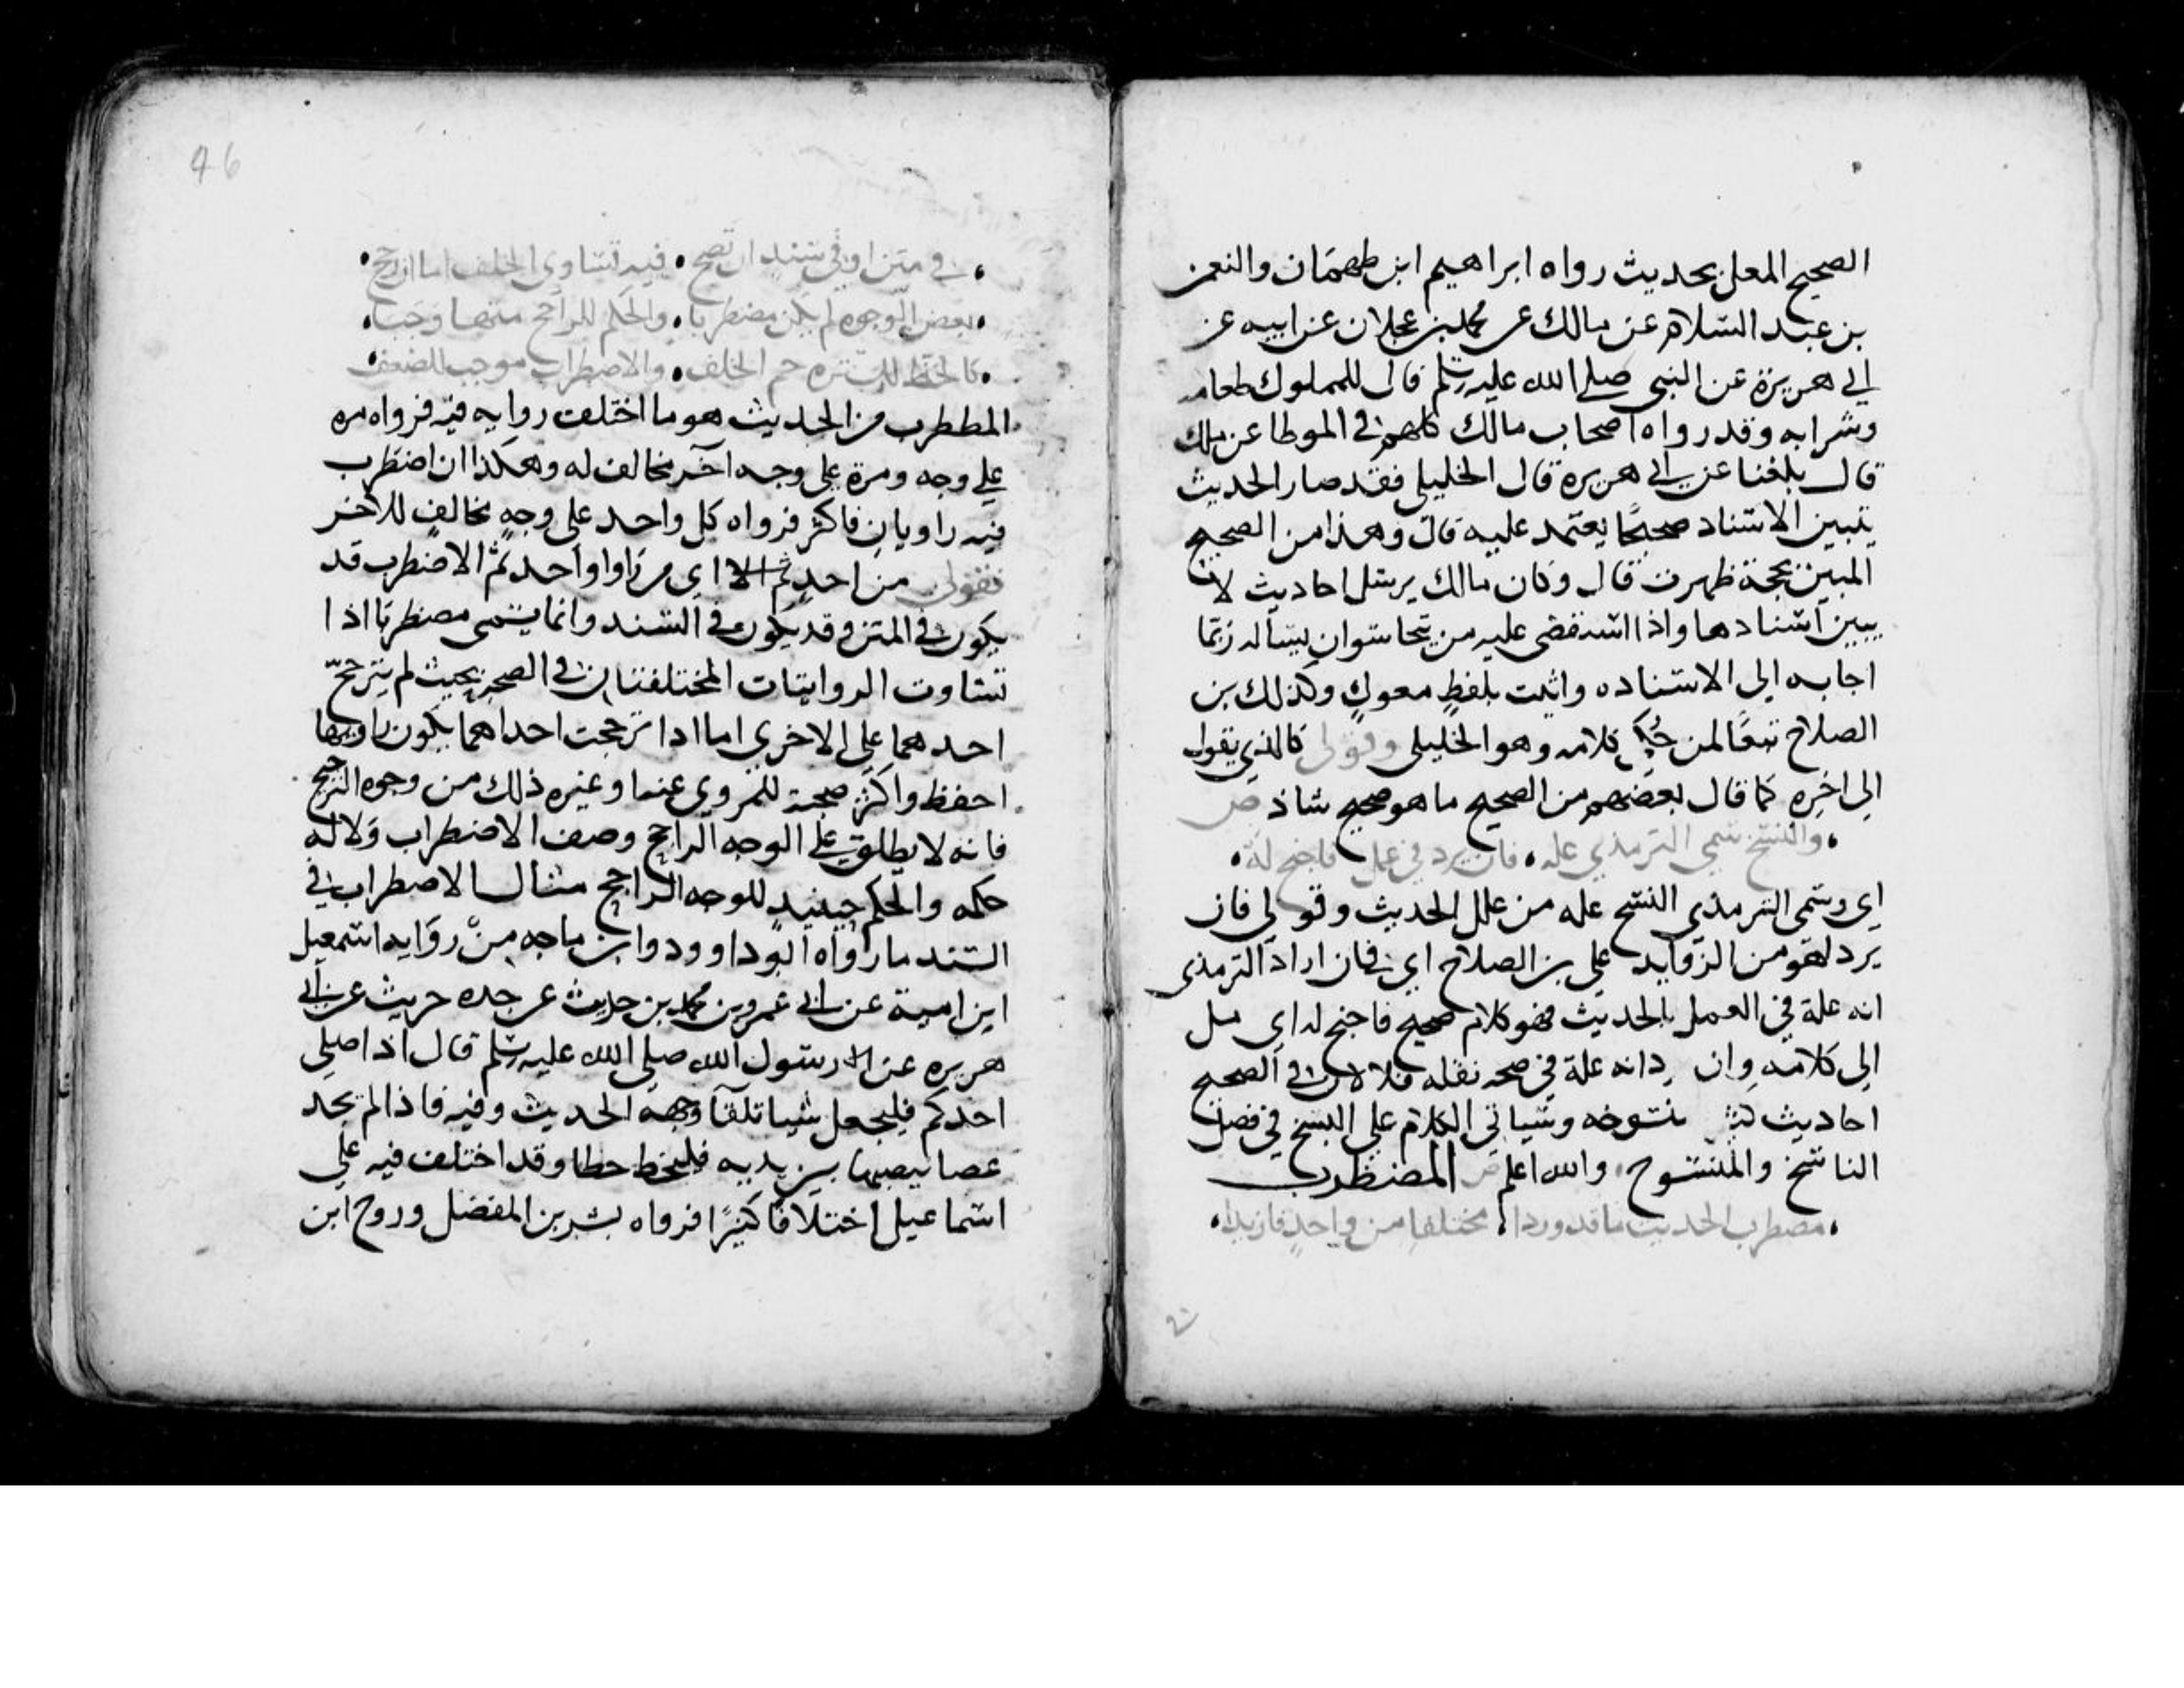 الصحيح المعل بحديث رواه ابراهيم ابن طهمان والنعمن
بن عبد السلام عن مالك عن محمد بن عجلان عن ابيه عن
ابي هريرة عن النبي صلي الله عليه وسلم قال للمملوك طعامه
وشرابه وقد رواه اصحاب مالك كلهم في الموطا عن مالك
قال بلغنا عن ابي هريره قال الخليلي فقد صار الحديث
بتبيين الاسناد صحيحًا يعتمد عليه قال وهذا من الصحيح
المبين بحجة ظهرت قال وكان مالك يرسل احاديث لا
يبين اسنادها واذا استقصي عليه من يتجاسر ان يساله ربما
اجابه الي الاسناده واتيت بلفظ معول وكذلك بن
الصلاح تبعًا لمن حُكي كلامه وهو الخليلي وقولي كالذي يقول
الي اخره كما قال بعضهم من الصحيح ما هو صحيح شاذ ص
والنسخ سمي الترمذي عله فان يرد في عمل فاجنح له
اي وسمي الترمذي النسخ عله من علل الحديث وقولي فان
يرد لهو من الزوايد علي بن الصلاح اي فان اراد الترمذي
انه علة في العمل بالحديث فهو كلام صحيح فاجنح له اي مل
الي كلامه وان رد انه علة في صحه نقله فلا لان في الصحيح
احاديث كثير منسوخه وسياتي الكلام علي النسخ في فصل
الناسخ والمنسوخ والله اعلم ص المضطرب
مضطرب الحديث ما قد وردا مختلفا من واحد فازيدا
46
في متن او في سند ان تضح فيه تساوي الخلف اما ان رجح
بعض الوجوه لم يكن مضطربا والحكم للراجح منها وجبا
كالخط للستره جم الخلف والاضطراب موجب للضعف
المططرب من الحديث هو ما اختلف روايه فيه فرواه مره
علي وجه ومرة علي وجه اخر مخالف له وهكذا ان اضطرب
فيه راويان فاكثر فرواه كل واحد علي وجهٍ مخالفٍ للاخر
فقولي من احد ثم الا اي من راو واحد ثم الاضطرب قد
يكون في المتن وقد يكون في السند وانما يسمي مضطربًا اذا
تساوت الروايتان المختلفتان في الصحه بحيث لم يترجح
احدهما علي الاخري اما ادا ترجحت احداهما بكون راويها
احفظ واكثر صحبة للمروي عنه او غيره ذلك من وجوه الترجيح
فانه لا يطلق علي الوجه الراجح وصف الاضطراب ولا له
حكمه والحكم حينيد للوجه الراجح مثال الاضطراب في
السند ما رواه ابو داوود وابن ماجه من روايه اسمعيل
ابن امية عن ابي عمرو بن محمد بن حريث عن جده حريث عن ابي
هريره عن رسول الله صلي الله عليه وسلم قال اذا صلي
احدكم فليجعل شيا تلقآ وجهه الحديث وفيه فاذا لم يجد
عصا ينصبها بين يديه فليخط خطا وقد اختلف فيه علي
اسماعيل اختلافا كثيرًا فرواه بشر بن المفضل وروح ابن